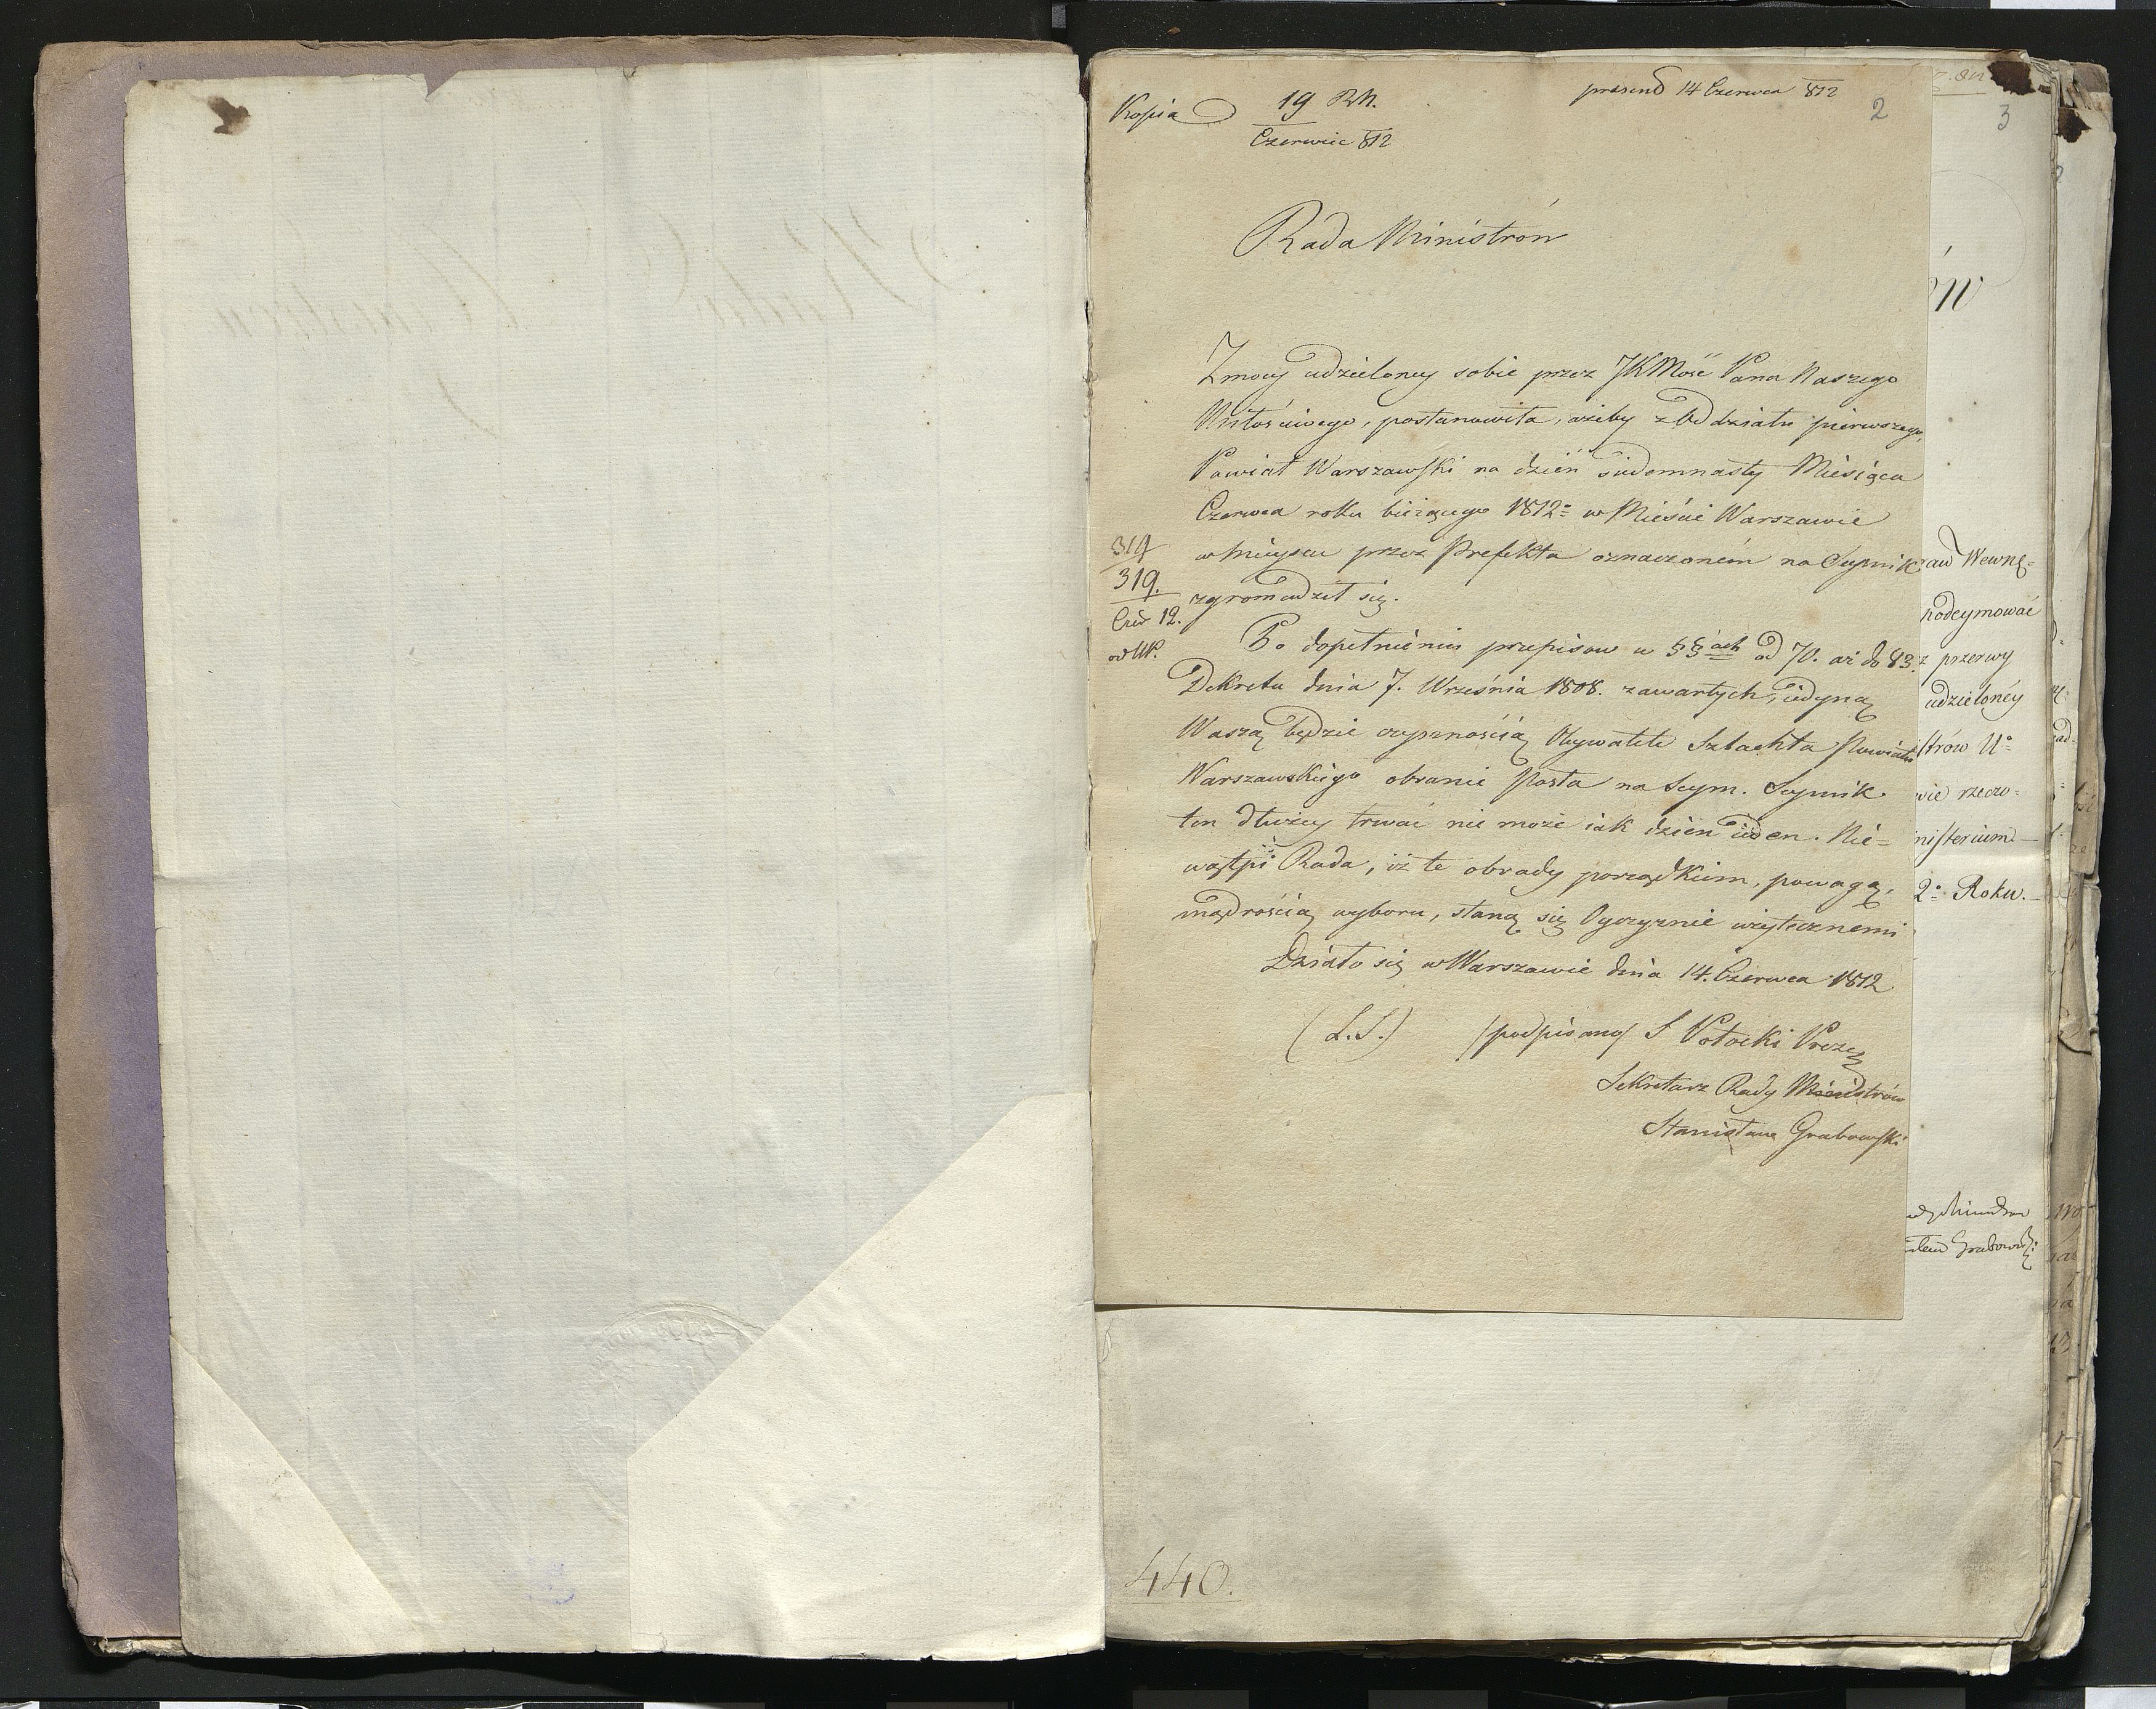 Kopia
19 RM.
Czerwiec 812
præsend 14 Czerwca 812
2
3
Rada Ministrow
Z mocy udzieloney sobie przez JKMość Pana Naszego
Miłościwego, postanowiła, ażeby z Oddziału pierwszego,
Powiat Warszawski na dzień siedemnasty Miesiąca
Czerwca roku bieżącego 1812o w Mieście Warszawie
w Mieyscu przez Prefekta oznaczoném na Seymik
zgromadził się.
319
319.
Czer 12.
Po dopełnieniu przepisow w §§ach od 70. aż do 83.
Dekretu dnia 7. Września 1808. zawartych, iedyną
Waszą będzie czynnością Obywatele Szlachta Powiatu
Warszawskiego obranie Posła na Seym. Seymik
ten dłużey trwać nie może iak dzień ieden. Nie=
wątpi Rada, iż te obrady porządkiem, powagą,
mądrością wyboru, staną się Oyczyznie użytecznemi
Działo się w Warszawie dnia 14. Czerwca 1812
(L.S.) /podpisano/ S Potocki Prezes
Sekretarz Rady Ministrów
Stanisław Grabowski
ów
raw Wewnę=
podeymować
z przerwy
udzieloney
strów U=
wie rzeczo=
nisterium
2o Roku.
Grabowski
440.